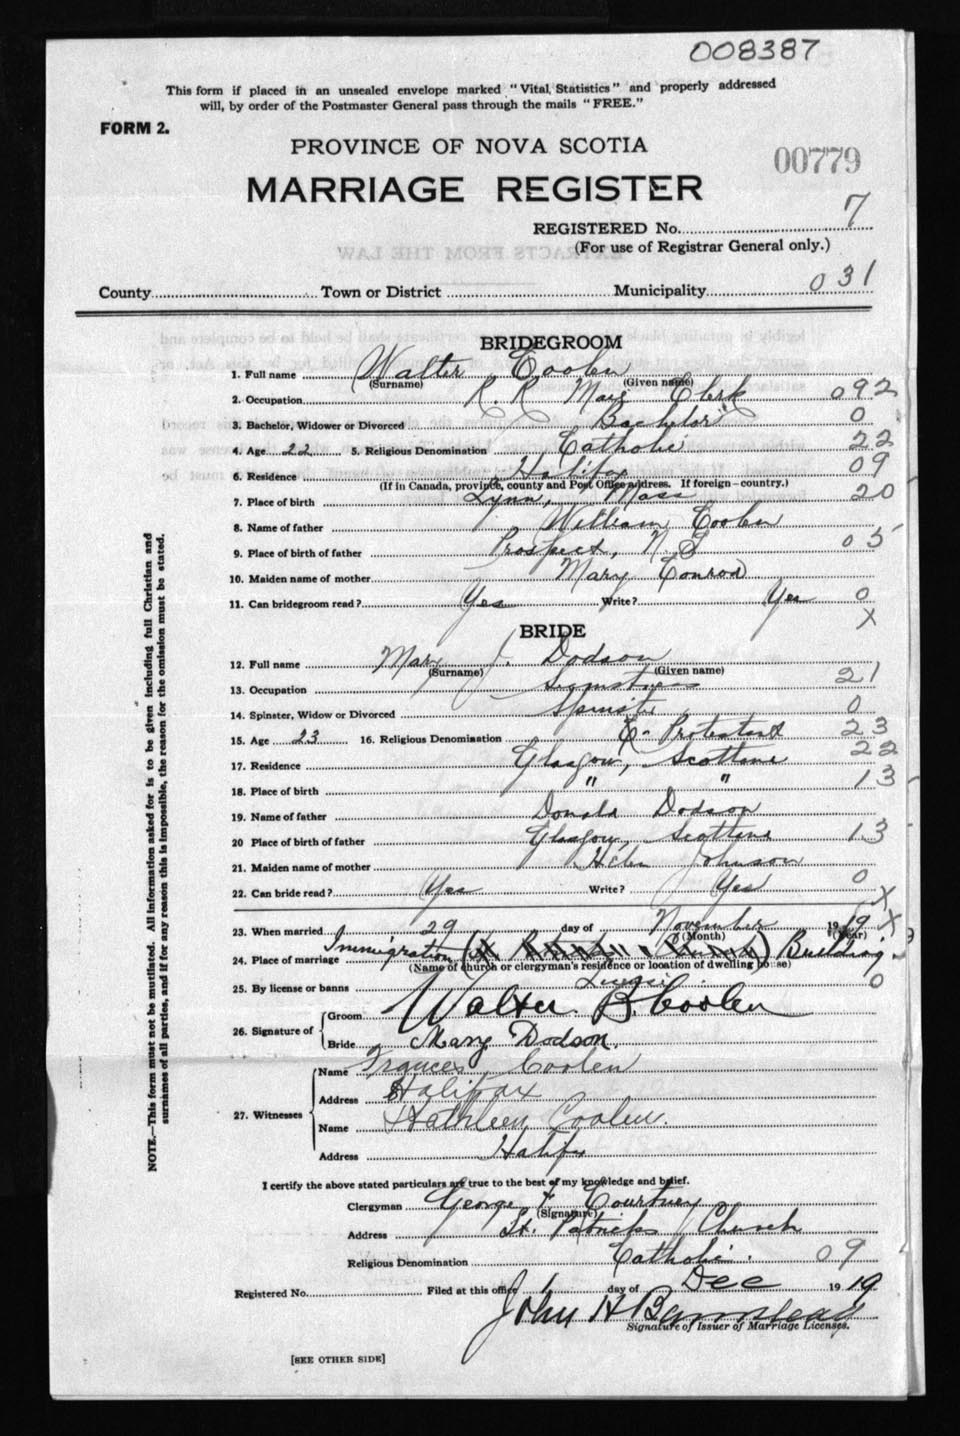 008387
This form if placed in an unsealed envelope marked "Vital Statistics" and properly addressed
will, by order of the Postmaster General pass through the mails "FREE."
FORM 2.
PROVINCE OF NOVA SCOTIA
00779
MARRIAGE REGISTER
REGISTERED No. 7
(For use of Registrar General only.)
County Town or District Municipality 031
BRIDEGROOM
1. Full name Walter Coolen
(Surname) (Given name)
2. Occupation R. R. Mail Clerk 092
3. Bachelor, Widower or Divorced Bachelor 0
4. Age 22 5. Religious Denomination Catholic 22
6. Residence Halifax 09
(If in Canada, province, county and Post Office address. If foreign—country.)
7. Place of birth Lynn, Mass 20
8. Name of father William Coolen
9. Place of birth of father Prospect, N. S 05
10. Maiden name of mother Mary Conrod
11. Can bridegroom read? Yes Write? Yes 0
X
BRIDE
12. Full name Mary J. Dodson
(Surname) (Given name)
13. Occupation 21
14. Spinster, Widow or Divorced Spinster 0
15. Age 23 16. Religious Denomination Protestant 23
17. Residence Glasgow, Scotland 22
18. Place of birth " " 13
19. Name of father Donald Dodson
20 Place of birth of father Glasgow, Scotland 13
21. Maiden name of mother Helen Johnson
22. Can bride read? Yes Write? Yes 0
X
23. When married 29 day of November 1919 X
(Month) (Year)
24. Place of marriage Immigration Building
(Name of church or clergyman's residence or location of dwelling house)
25. By license or banns License 0
26. Signature of Groom Walter B. Coolen
Bride Mary Dodson.
27. Witnesses
Name Frances Coolen
Address Halifax
Name Kathleen Coolen.
Address Halifx
I certify the above stated particulars are true to the best of my knowledge and belief.
Clergyman George F Courtney
(Signature)
Address St. Patricks Church
Religious Denomination Catholic. 09
Registered No. Filed at this office 1 day of Dec 1919
John H Barnstead
Signature of Issuer of Marriage Licenses.
[SEE OTHER SIDE]
NOTE.—This form must not be mutilated. All information asked for is to be given including full Christian and
surnames of all parties, and if for any reason this is impossible, the reason for the omission must be stated.